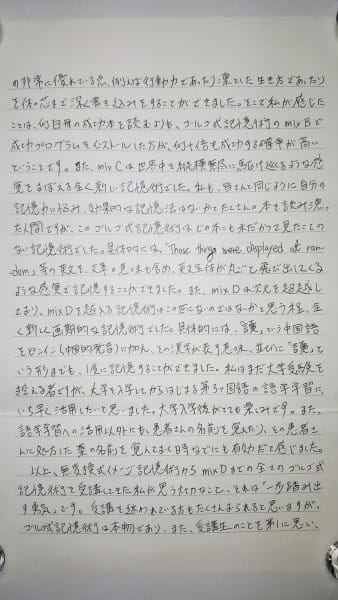 の非常に優れている点、例えば行動力であったり凛とした生き方であったり
を体の芯まで深く書き込みをすることができました。そこで私が感じた
ことは、何百冊の成功本を読むよりも、ゴルゴ式記憶術の mix B で
成功プログラムをインストールした方が、何十倍も成功する確率が高い
ということです。また、mix C は世界中を縦横無尽に駆け巡るような感
覚をおぼえる全く新しい記憶術でした。私も、皆さんと同じように自分の
記憶力に悩み、効果的な記憶法はないかとたくさんの本を読み漁っ
た人間ですが、このゴルゴ式記憶術はどの本にも未だかつて見たことの
ない記憶術でした。具体的には、"Those things were displayed at ran-
dom." 等の英文を、文章の意味も含め、英文全体が丸ごと飛び出てくる
ような感覚で記憶することができました。また、mix D は次元を超越し
ており、mix D を越える記憶術はこの世にないのではないかと思う程、全
く新しい画期的な記憶術でした。具体的には、という中国語
をピンイン(中国的発音)に加え、その漢字が表す意味、並びにと
いう形までも、1度に記憶することができました。私はまだ大学受験を
控える者ですが、大学を入学してからはじまる第3ヶ国語の語学学習に
いち早く活用したいと思いました。大学入学後がとても楽しみです。また、
語学学習への活用以外にも、患者さんの名前を覚えたり、その患者さ
んに処方した薬の名前を覚えておく時などにも有効だと感じました。
以上、無意識式イメージ記憶術から mix D までの全てのゴルゴ式
記憶術を受講してきた私が思う大切なこと、それは「一歩踏み出
す勇気」です。受講を迷われている方もたくさんおられると思いますが、
ゴルゴ式記憶術は本物であり、また、受講生のことを第1に思い、